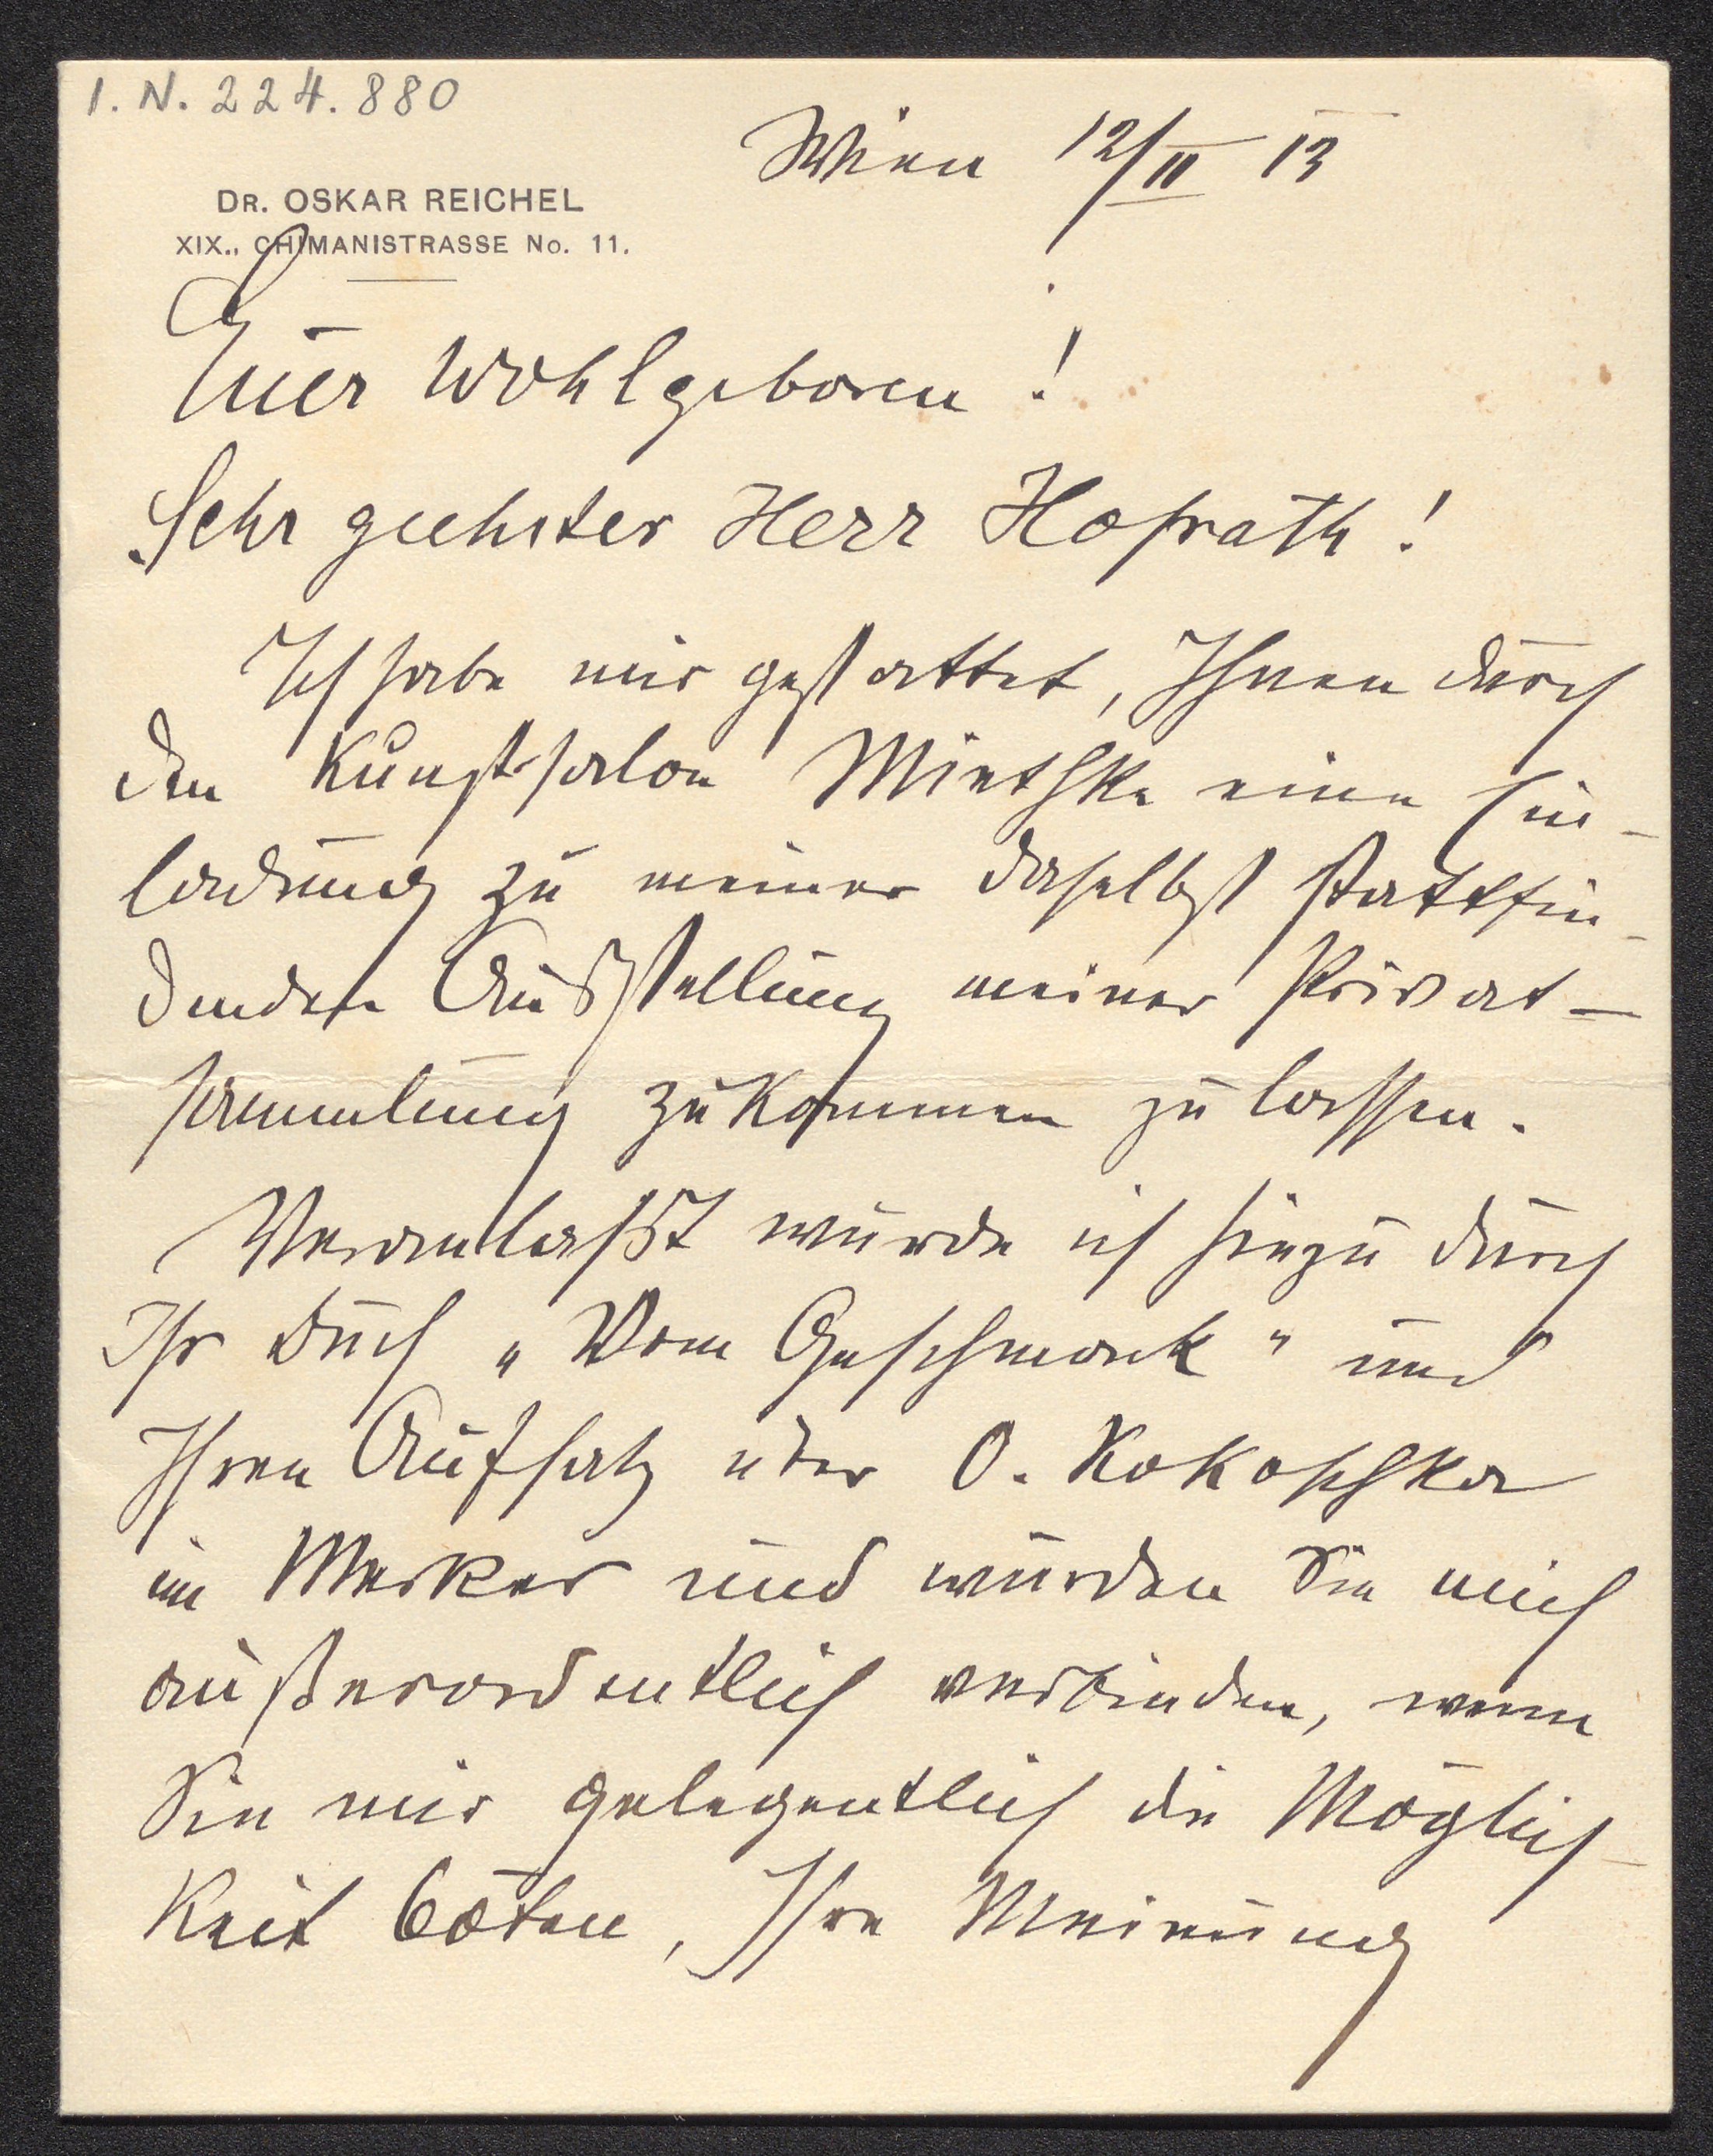 I. N. 224.880
Wien 12/II 13
DR. OSKAR REICHEL
XIX., CHIMANISTRASSE No. 11.
Euer Wohlgeboren!
Sehr geehrter Herr Hofrath!
Ich habe mir gestattet, Ihnen durch
den Kunstsalon Miethke eine Ein-
ladung zu meiner daselbst stattfin-
denden Ausstellung meiner Privat-
sammlung zukommen zu lassen.
Veranlaßt wurde ich hiezu durch
Ihr Buch „Vom Geschmack" und
Ihren Aufsatz über O. Kokoschka
im Merker und würden Sie mich
außerordentlich verbinden, wenn
Sie mir gelegentlich die Möglich-
keit böten, Ihre Meinung